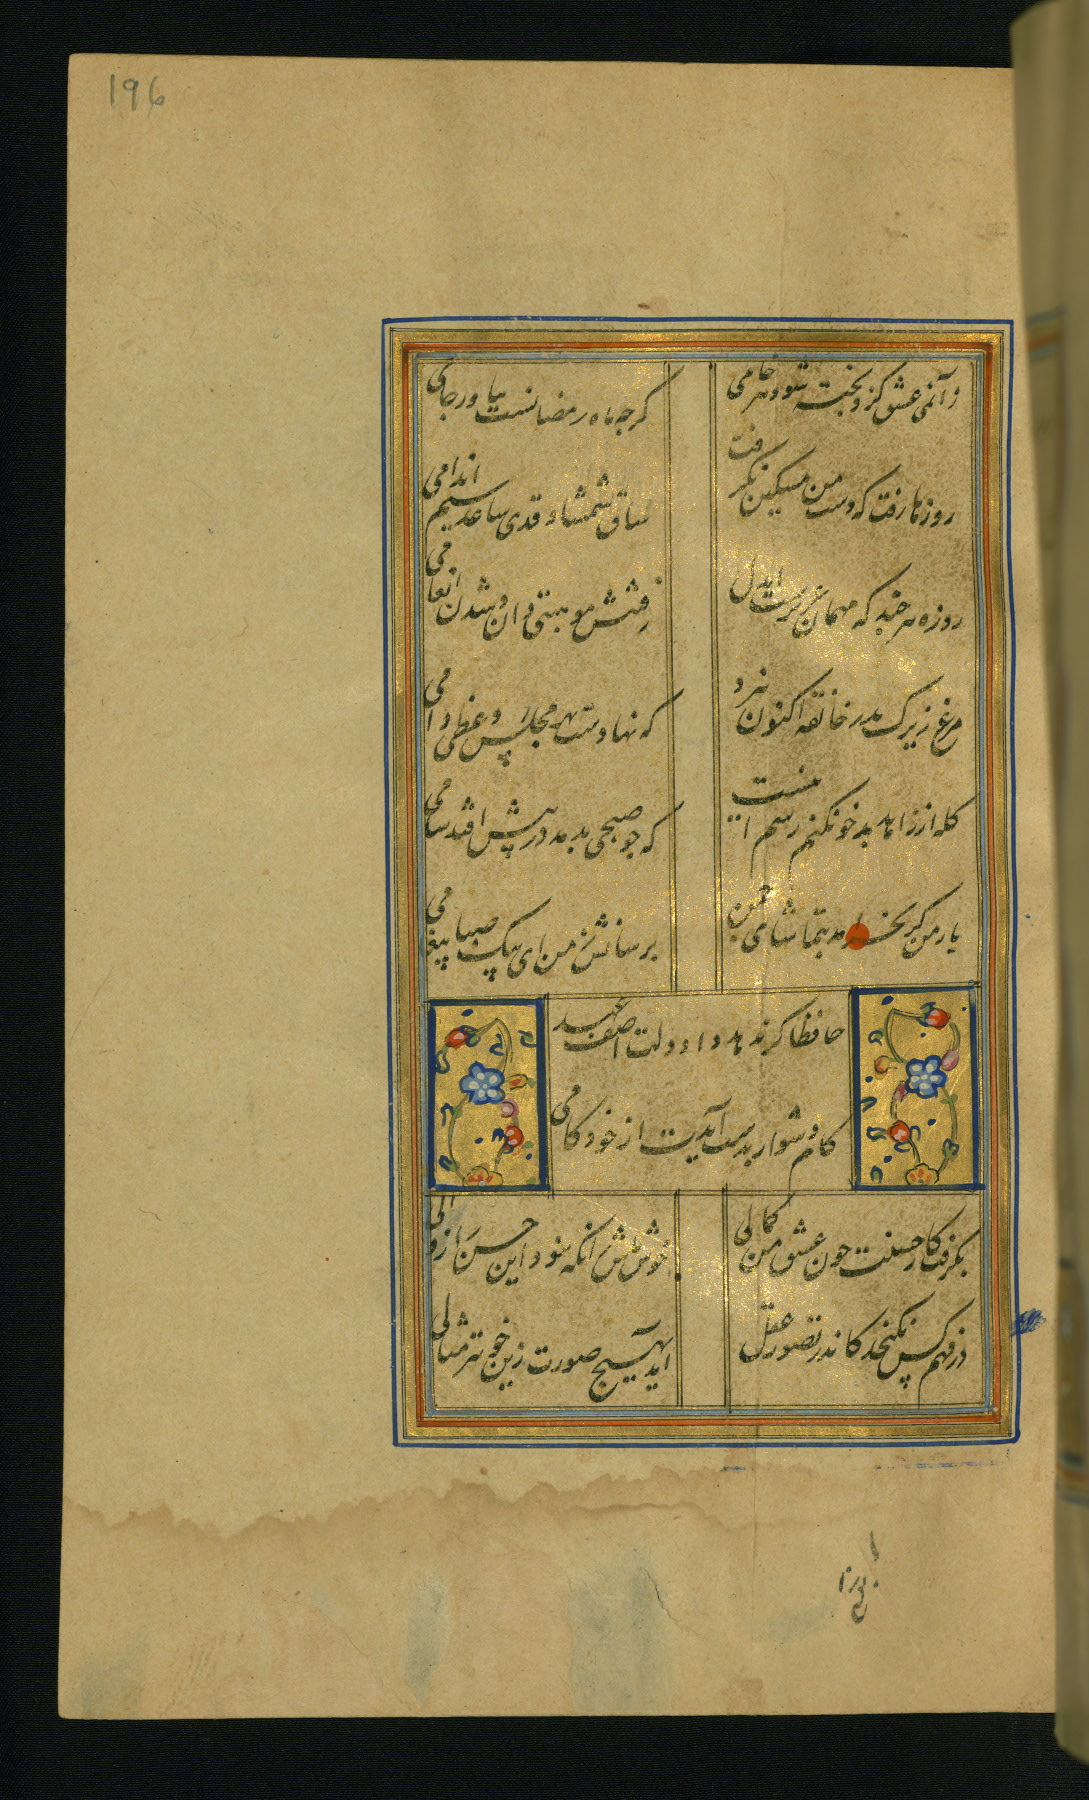 196
زآنمی عشق کزو پخته شود هر خامی
کرجه ماه رمضانست بیاور جامی
روزها رفت که دست من مسکین نکرفت
ساق شمشاد قدی ساعد سیم اندامی
روزه هر چند که مهمان عزیزست ایدل
رفتنش موهبتی دان و شدن انعامی
مرغ زیرک بدر خانقه اکنون نپرد
که نهادست بهر مجلس وعظی دامی
کله از زاهد بدخو نکنم رسم اینست
که جو صبحی بدمد در پیش افتد شامی
یار من کر بخرامد بتماشای چمن
برسانش ز من ای پیک صبا پیغامی
حافظا کر ندهد داد دولت اصف عهد
کام دشوار بدست آیدت از خود کامی
بکرفت کار حسنت جون عشق من کمالی
خوش باش زانکه نبود این حسن را زوالی
در فهم کس نکنجد کاندر تصور عقل
اید بهیچ صورت زین خوبتر مثالی